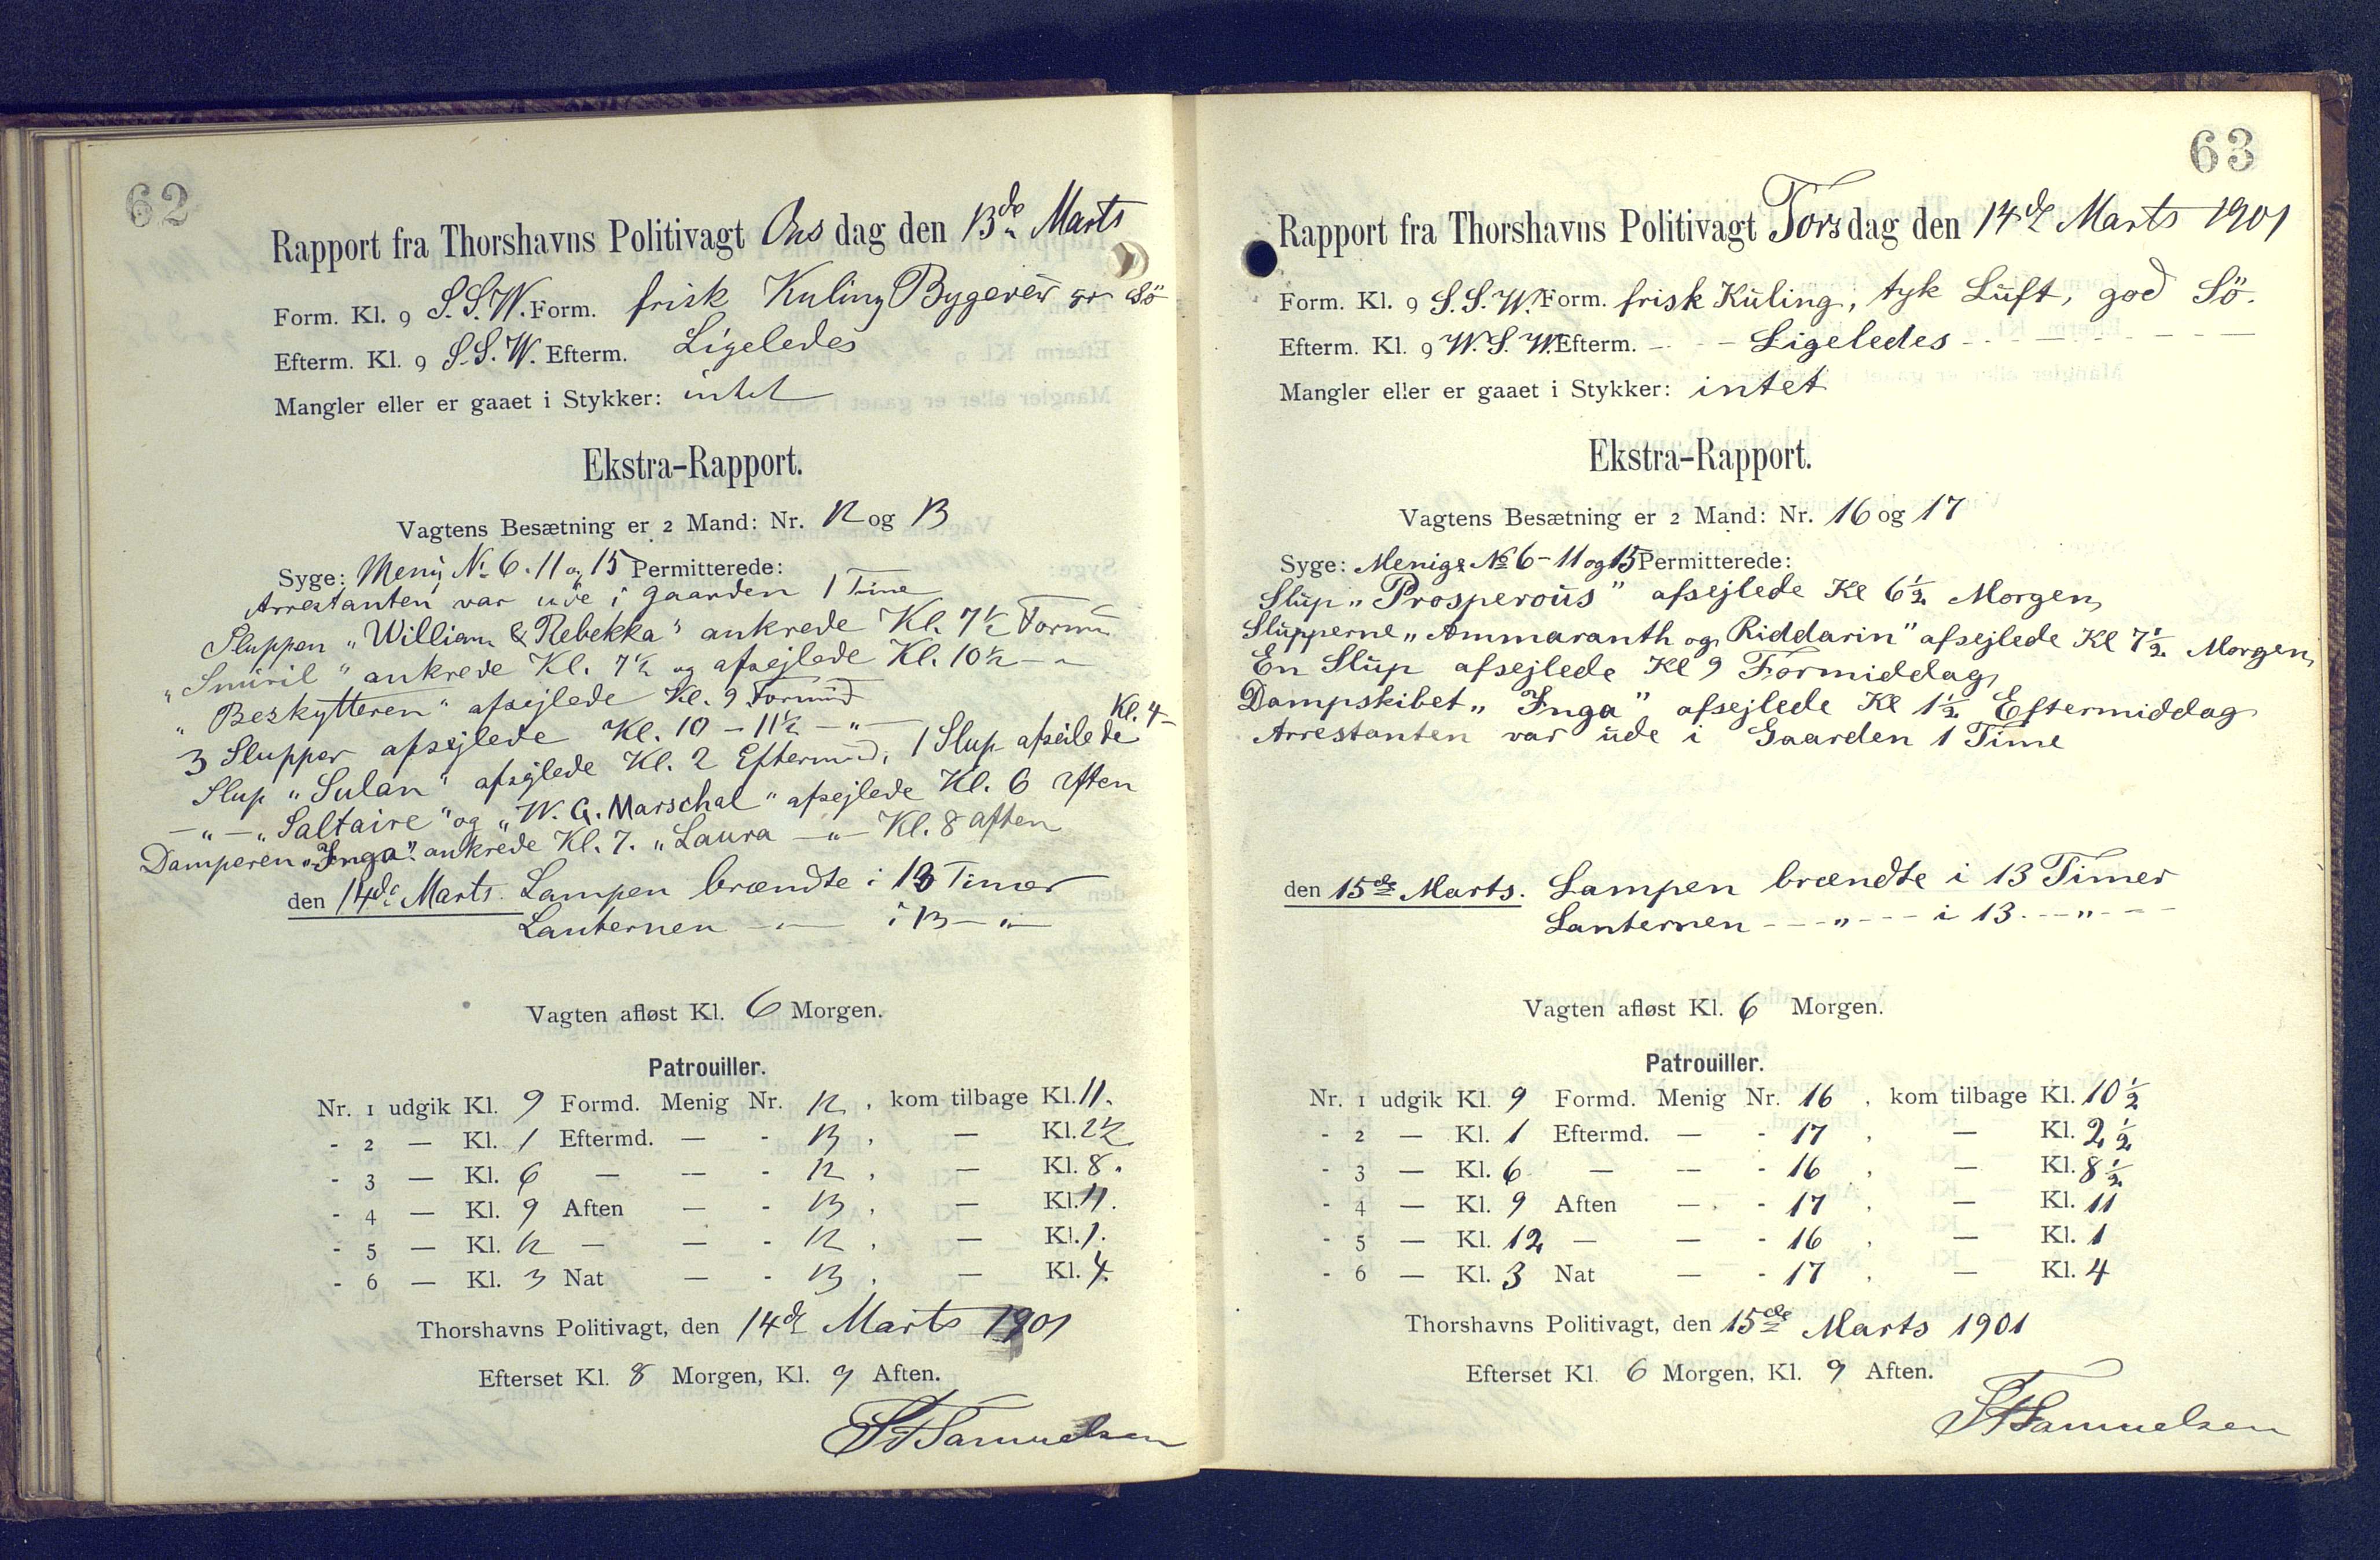 62
Rapport fra Thorshavns Politivagt Onsdag den 13de Marts
Form. Kl. 9 S.S.W. Form. frisk Kuling Bygeveir gr Sö
Efterm. Kl. 9 S.S.W. Efterm. Ligeledes
Mangler eller er gaaet i Stykker: intet
Ekstra-Rapport.
Vagtens Besætning er 2 Mand: Nr. 12 og 13
Syge: Menig No 6. 11 og 15 Permitterede:
Arrestanten var ude i Gaarden 1 Time
Sluppen „William & Rebekka" ankrede Kl. 7½ Formid
„Smiril" ankrede Kl. 7½ og afsejlede Kl. 10½ - "
„Beskytteren" afsejlede Kl. 9 Formid
3 Slupper afsejlede Kl. 10 - 11½ - " -
Slup „Sulan" afsejlede Kl. 2 Eftermid, 1 Slup afseilede Kl. 4 -
- " - „Saltaire" og „W. G. Marschal" afsejlede Kl. 6 Aften
Damperen „Inga" ankrede Kl. 7. „Laura - " - Kl. 8 aften
den 14de Marts. Lampen brændte i 13 Timer
Lanternen - " - i 13 - " -
Vagten afløst Kl. 6 Morgen.
Patrouiller.
Nr. 1 udgik Kl. 9 Formd. Menig Nr. 12, kom tilbage Kl. 11.
- 2 — Kl. 1 Eftermd. — - 13, — Kl. 2½
- 3 — Kl. 6 — — - 12, — Kl. 8.
- 4 — Kl. 9 Aften — - 13, — Kl. 11.
- 5 — Kl. 12 — — - 12, — Kl. 1.
- 6 — Kl. 3 Nat — - 13, — Kl. 4.
Thorshavns Politivagt, den 14de Marts 1901
Efterset Kl. 8 Morgen, Kl. 9 Aften.
Samuelsen
63
Rapport fra Thorshavns Politivagt Torsdag den 14de Marts 1901
Form. Kl. 9 S.S.W. Form. frisk Kuling, tyk Luft, god Sö.
Efterm. Kl. 9 W.S.W. Efterm. - - - Ligeledes - - - - - -
Mangler eller er gaaet i Stykker: intet
Ekstra-Rapport.
Vagtens Besætning er 2 Mand: Nr. 16 og 17
Syge: Menige No 6 - 11 og 15 Permitterede:
Slup „Prosperous" afsejlede Kl 6½ Morgen,
Slupperne „Ammaranth og Riddarin" afsejlede Kl 7½ Morgen,
En Slup afsejlede Kl 9 Formiddag,
Dampskibet „Inga" afsejlede Kl 1½ Eftermiddag
Arrestanten var ude i Gaarden 1 Time
den 15de Marts. Lampen brændte i 13 Timer
Lanternen - - - " - - - i 13 - - - " - - -
Vagten afløst Kl. 6 Morgen.
Patrouiller.
Nr. 1 udgik Kl. 9 Formd. Menig Nr. 16, kom tilbage Kl. 10½
- 2 — Kl. 1 Eftermd. — - 17, — Kl. 2½
- 3 — Kl. 6 — — - 16, — Kl. 8½
- 4 — Kl. 9 Aften — - 17, — Kl. 11
- 5 — Kl. 12 — — - 16, — Kl. 1
- 6 — Kl. 3 Nat — - 17, — Kl. 4
Thorshavns Politivagt, den 15de Marts 1901
Efterset Kl. 6 Morgen, Kl. 9 Aften.
Samuelsen